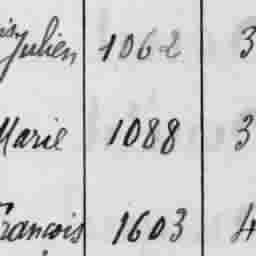 Julien 1062 3
Marie 1088 3
François 1603 4